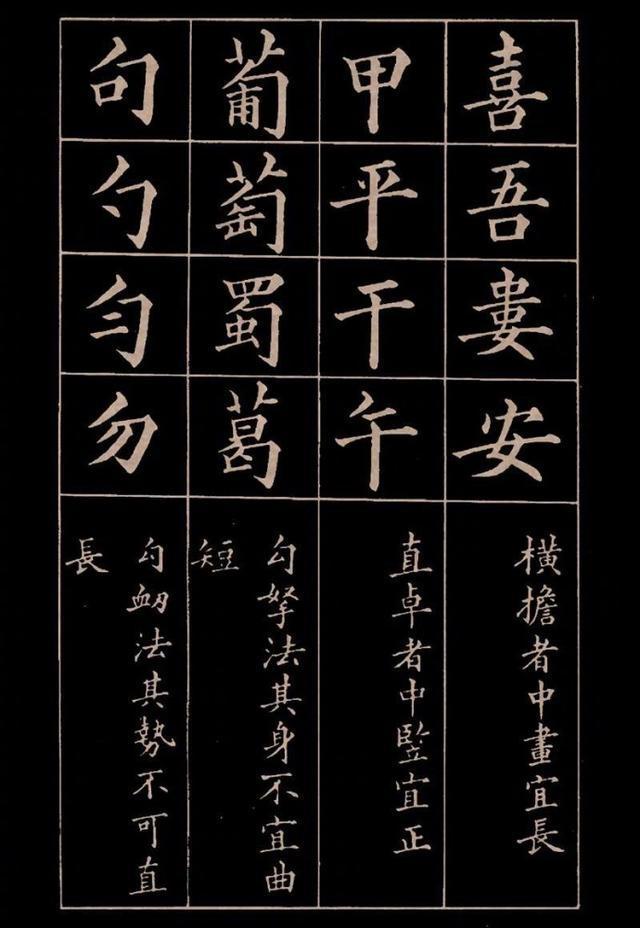 喜吾婁安
橫擔者中畫宜長
甲平干午
直卓者中竪宜正
葡萄蜀葛
勾拏法其身不宜曲
短
句勺勻勿
勾衂法其勢不可直
長